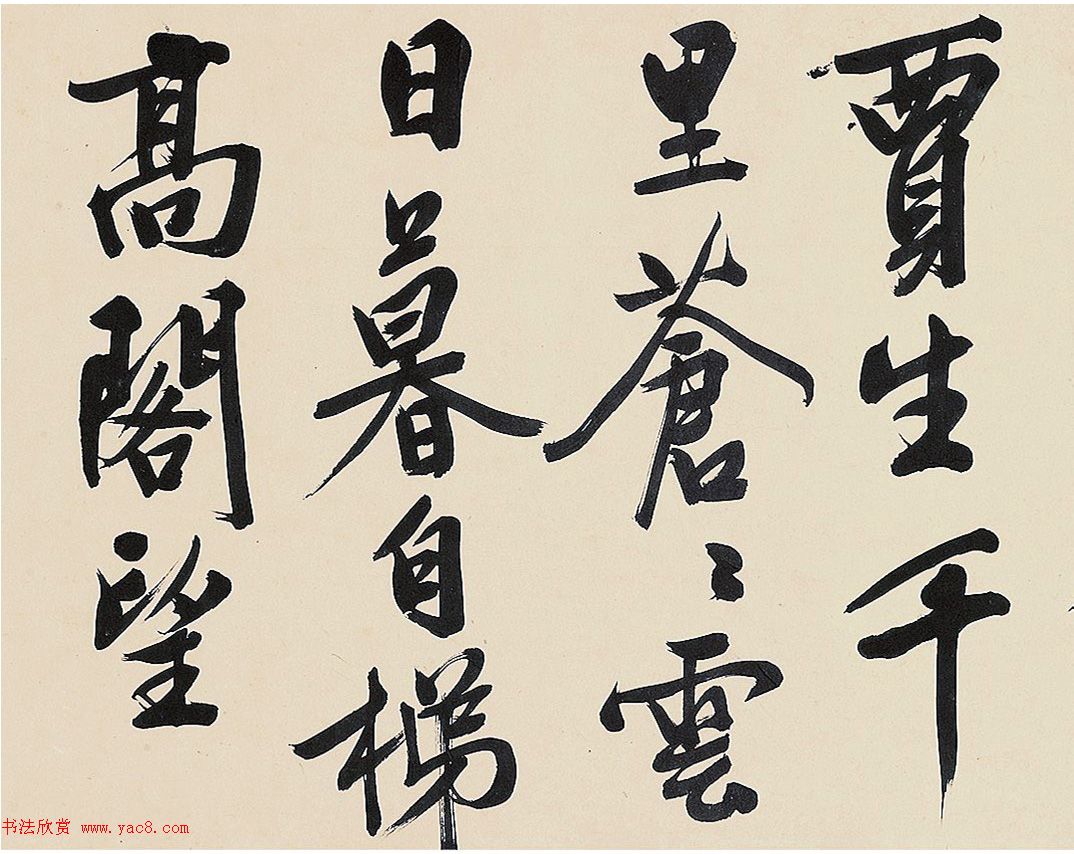 賈生千
里蒼〻雲
日暮自梯
高閣望
书法欣赏 www.yac8.com